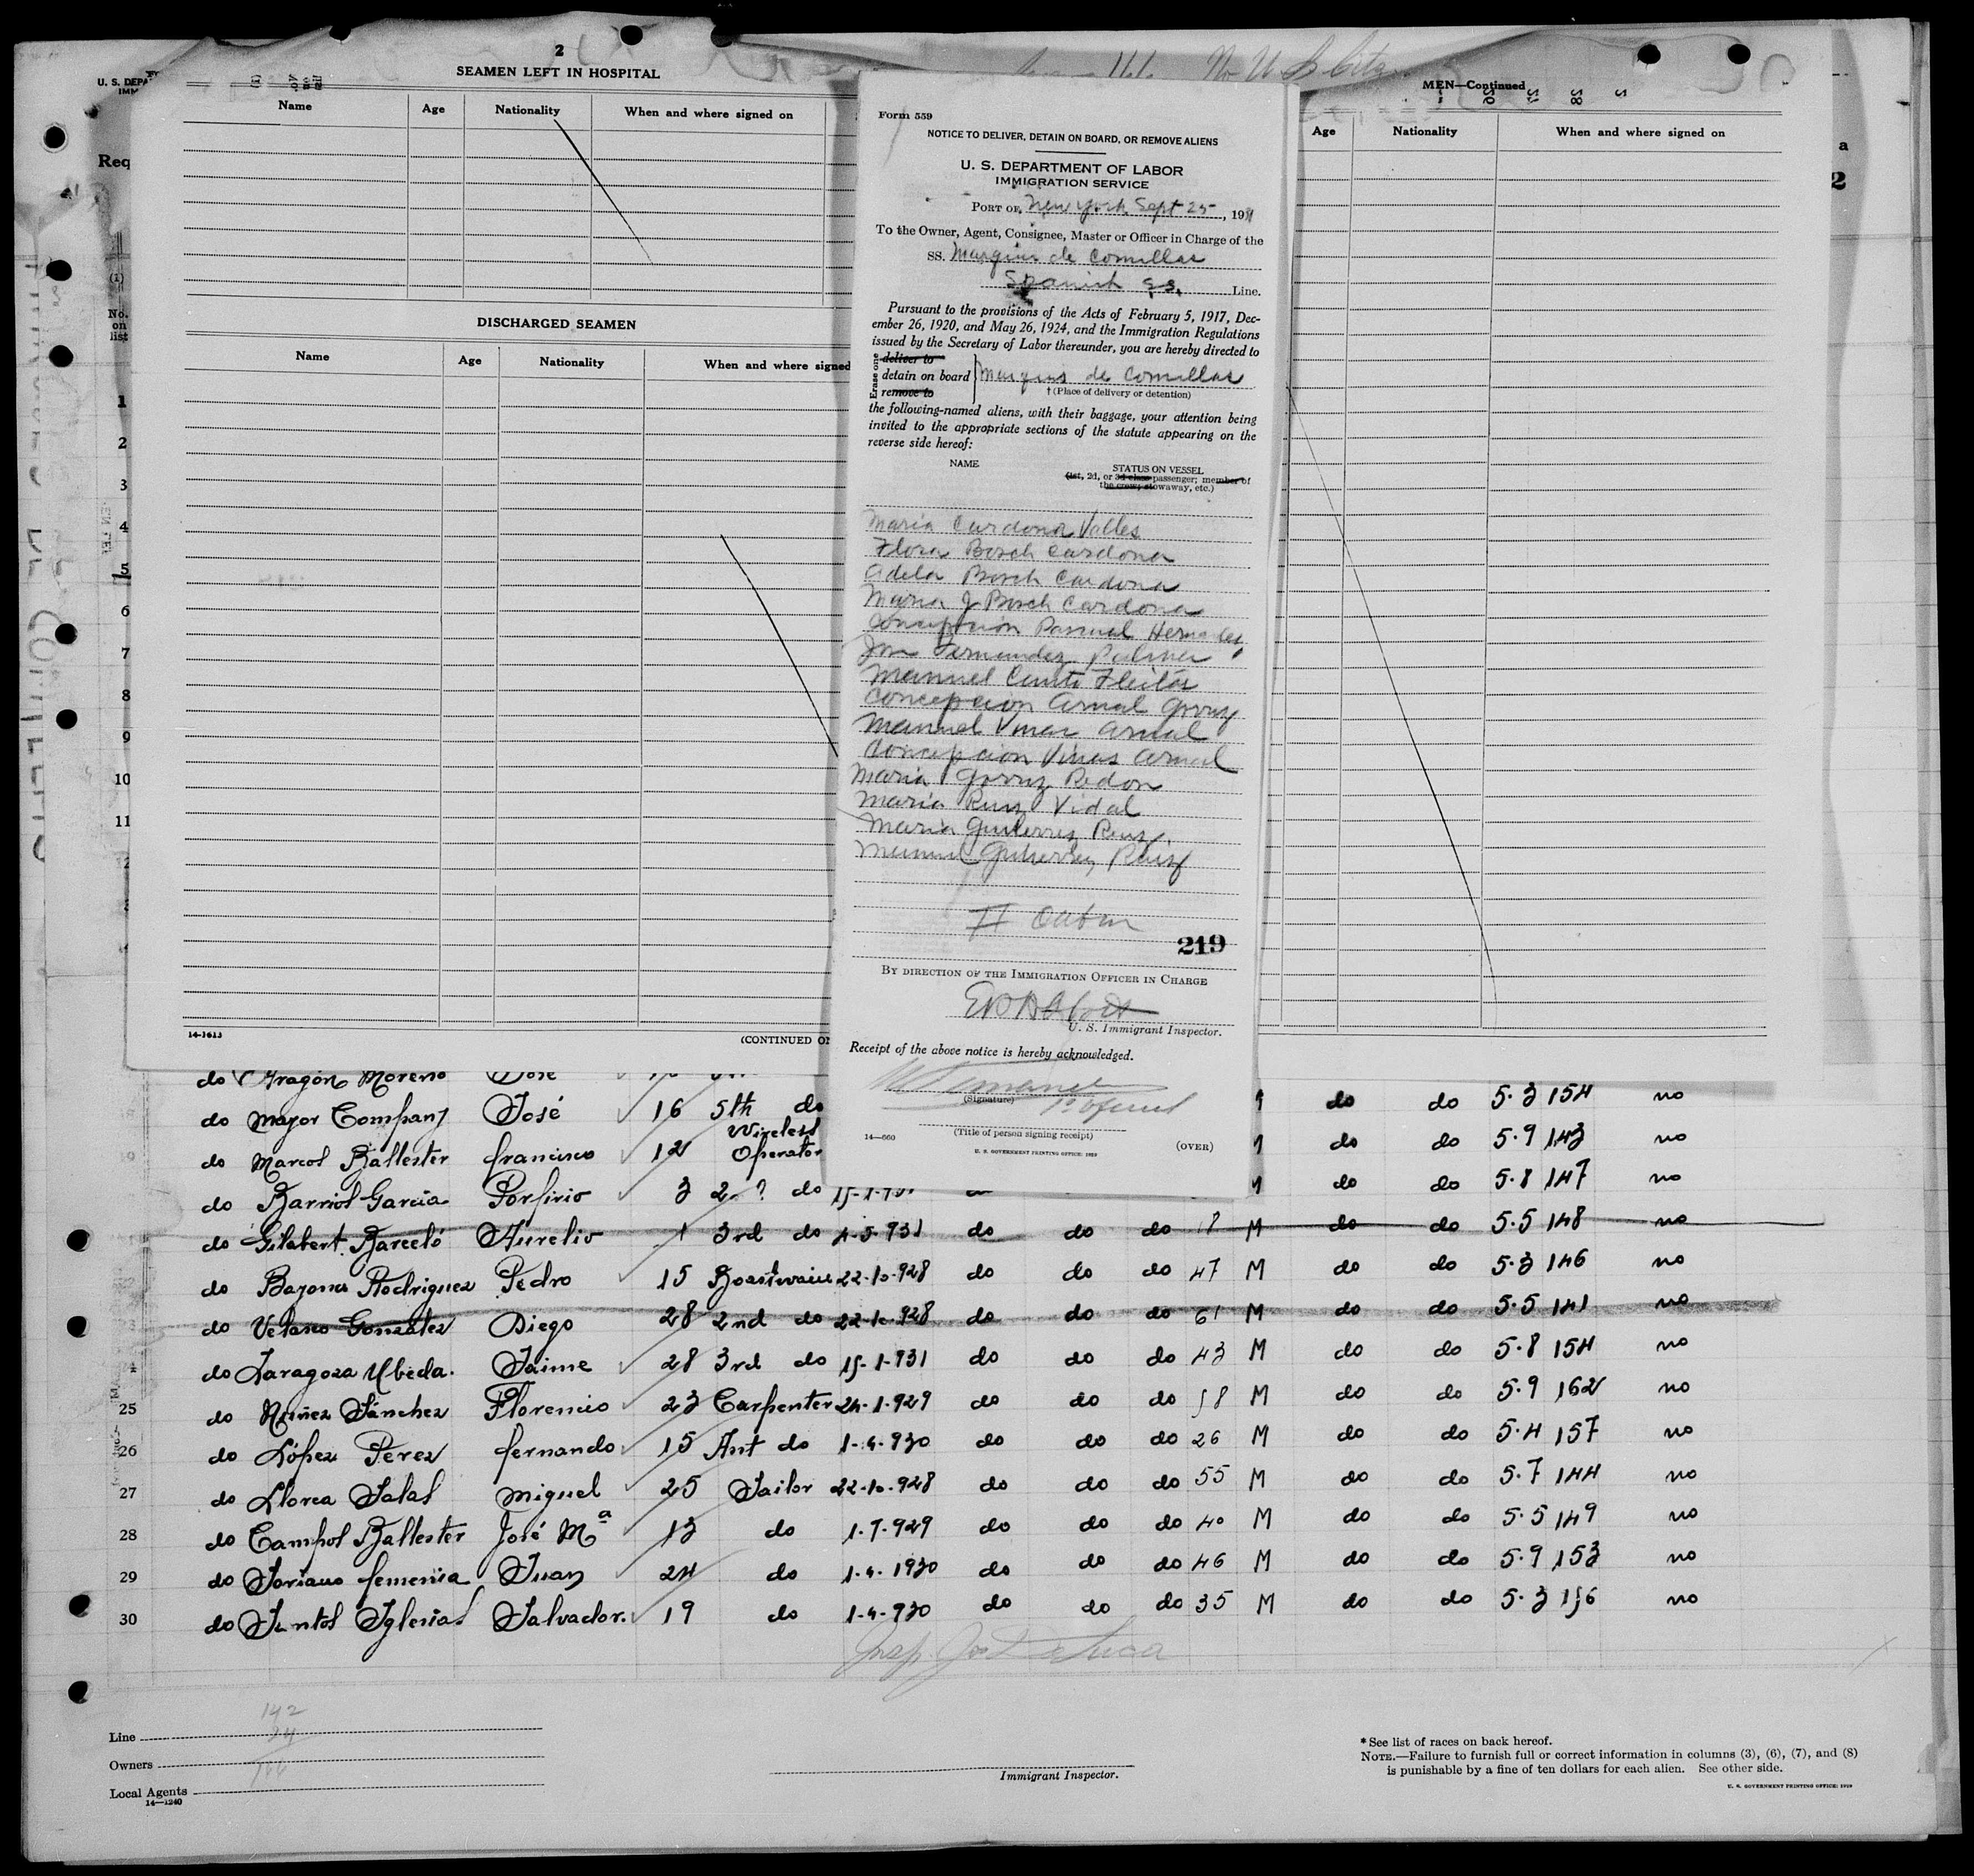 2
SEAMEN LEFT IN HOSPITAL
Name Age Nationality When and where signed on
DISCHARGED SEAMEN
Name Age Nationality When and where signed
14-1613
(CONTINUED ON
U. S. DEPA
IMM
Req
(1)
No.
on
list
1
2
3
4
5
6
7
8
9
10
11
No U S Citz
MEN—Continued
Age Nationality When and where signed on
a
2
Form 559
NOTICE TO DELIVER, DETAIN ON BOARD, OR REMOVE ALIENS
U. S. DEPARTMENT OF LABOR
IMMIGRATION SERVICE
PORT OF New York Sept 25, 1931
To the Owner, Agent, Consignee, Master or Officer in Charge of the
SS. Marquis de Comillas
Spanish SS. Line.
Pursuant to the provisions of the Acts of February 5, 1917, Dec-
ember 26, 1920, and May 26, 1924, and the Immigration Regulations
issued by the Secretary of Labor thereunder, you are hereby directed to
Erase one
deliver to
detain on board Marquis de Comillas
remove to
† (Place of delivery or detention)
the following-named aliens, with their baggage, your attention being
invited to the appropriate sections of the statute appearing on the
reverse side hereof:
NAME STATUS ON VESSEL
(1st, 2d, or 3d class passenger; member of
the crew; stowaway, etc.)
Maria Cardona Valles
Flora Bosch Cardona
Adela Bosch Cardona
Maria J Bosch Cardona
Concepcion Pascual
Fernandez Palmer
Manuel Fleitas
Concepcion Arnal Gorriz
Manuel Vinas Arnal
Concepcion Vinas Arnal
Maria Gorriz Redon
Maria Ruiz Vidal
Maria Gutierrez Ruiz
Manuel Gutierrez Ruiz
219
BY DIRECTION OF THE IMMIGRATION OFFICER IN CHARGE
U. S. Immigrant Inspector.
Receipt of the above notice is hereby acknowledged.
(Signature)
(Title of person signing receipt)
14—660
U. S. GOVERNMENT PRINTING OFFICE: 1929
(OVER)
do Aragón Moreno José
do Mayor Company José 16 5th do do do 5.3 154 no
do Marcos Ballester francisco 12 Wireless Operator do do 5.9 143 no
do Barrios Garcia Porfirio 3 2 do 15-1-931 do do 5.8 147 no
do Gilabert Barceló Aurelio 1 3rd do 4-5-931 do do do 18 M do do 5.5 148 no
do Bayona Rodriguez Pedro 15 Boastwain 22-10-928 do do do 47 M do do 5.3 146 no
do Velasco Gonzalez Diego 28 2nd do 22-10-928 do do do 61 M do do 5.5 141 no
do Zaragoza Ubeda. Jaime 28 3rd do 15-1-931 do do do 43 M do do 5.8 154 no
25 do Nuñez Sánchez Florencio 23 Carpenter 24-1-929 do do do 58 M do do 5.9 162 no
26 do López Perez fernando 15 Ant do 1-4-930 do do do 26 M do do 5.4 157 no
27 do Llorca Salas Miguel 25 Sailor 22-10-928 do do do 55 M do do 5.7 144 no
28 do Campos Ballester José Mª 13 do 1-7-929 do do do 40 M do do 5.5 149 no
29 do Soriano femenia Juan 24 do 1-4-1930 do do do 46 M do do 5.9 153 no
30 do Santos Iglesias Salvador. 19 do 1-4-930 do do do 35 M do do 5.3 156 no
142
24
166
Line
Owners
Local Agents
14—1240
Immigrant Inspector.
* See list of races on back hereof.
NOTE.—Failure to furnish full or correct information in columns (3), (6), (7), and (8)
is punishable by a fine of ten dollars for each alien. See other side.
U. S. GOVERNMENT PRINTING OFFICE: 1929